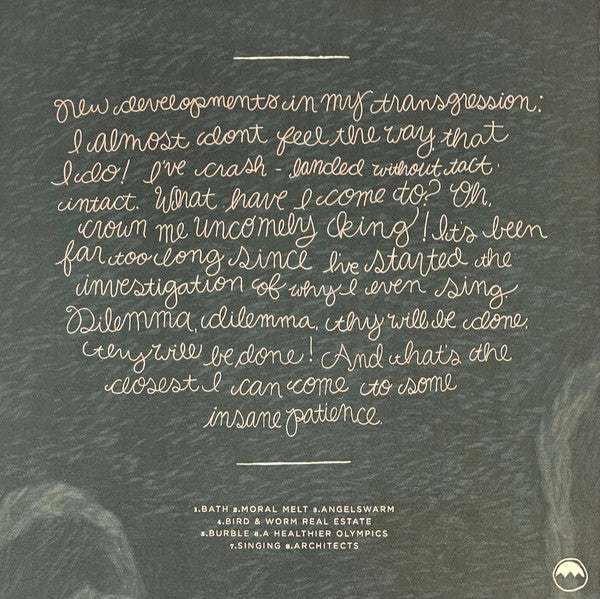 New developments in my transgression:
I almost dont feel the way that
I do! I've crash-landed without tact.
intact. What have I come to? Oh,
crown me uncomely king! It's been
far too long since I've started the
investigation of why I even sing.
Dilemma, dilemma, thy will be done,
they will be done! And that's the
closest I can come to some
insane patience.
1.BATH 2.MORAL MELT 3.ANGELSWARM
4.BIRD & WORM REAL ESTATE
5.BURBLE 6.A HEALTHIER OLYMPICS
7.SINGING 8.ARCHITECTS